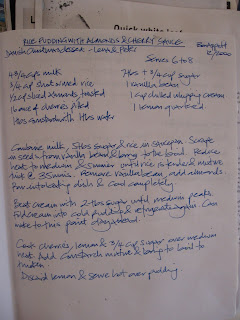 Quick white
RICE PUDDING WITH ALMONDS & CHERRY SAUCE
Danish Christmas dessert - Lena & Peter
12/2000
Serves 6 to 8
4 3/4 cups milk
3/4 cup short grained rice
1/2 cup sliced almonds, toasted
1 can of cherries pitted
1 tbs cornstarch 1 tbs water
7 tbs + 3/4 cup sugar
1 vanilla bean
1 cup chilled whipping cream
1 lemon quartered
Combine milk, 5 tbs sugar & rice in saucepan. Scrape
in seeds from vanilla bean & bring to the boil. Reduce
heat to medium & simmer until rice is tender & mixture
thick @ 35 mins. Remove vanilla bean, add almonds.
Pour into serving dish & cool completely
Beat cream with 2 tbs sugar until medium peaks.
Fold cream into cold pudding & refrigerate again. Can
make to this point a day ahead.
Cook cherries, lemon & 3/4 cup sugar over medium
heat. Add cornstarch mixture & bring to boil to
thicken
Discard lemon & serve hot over pudding